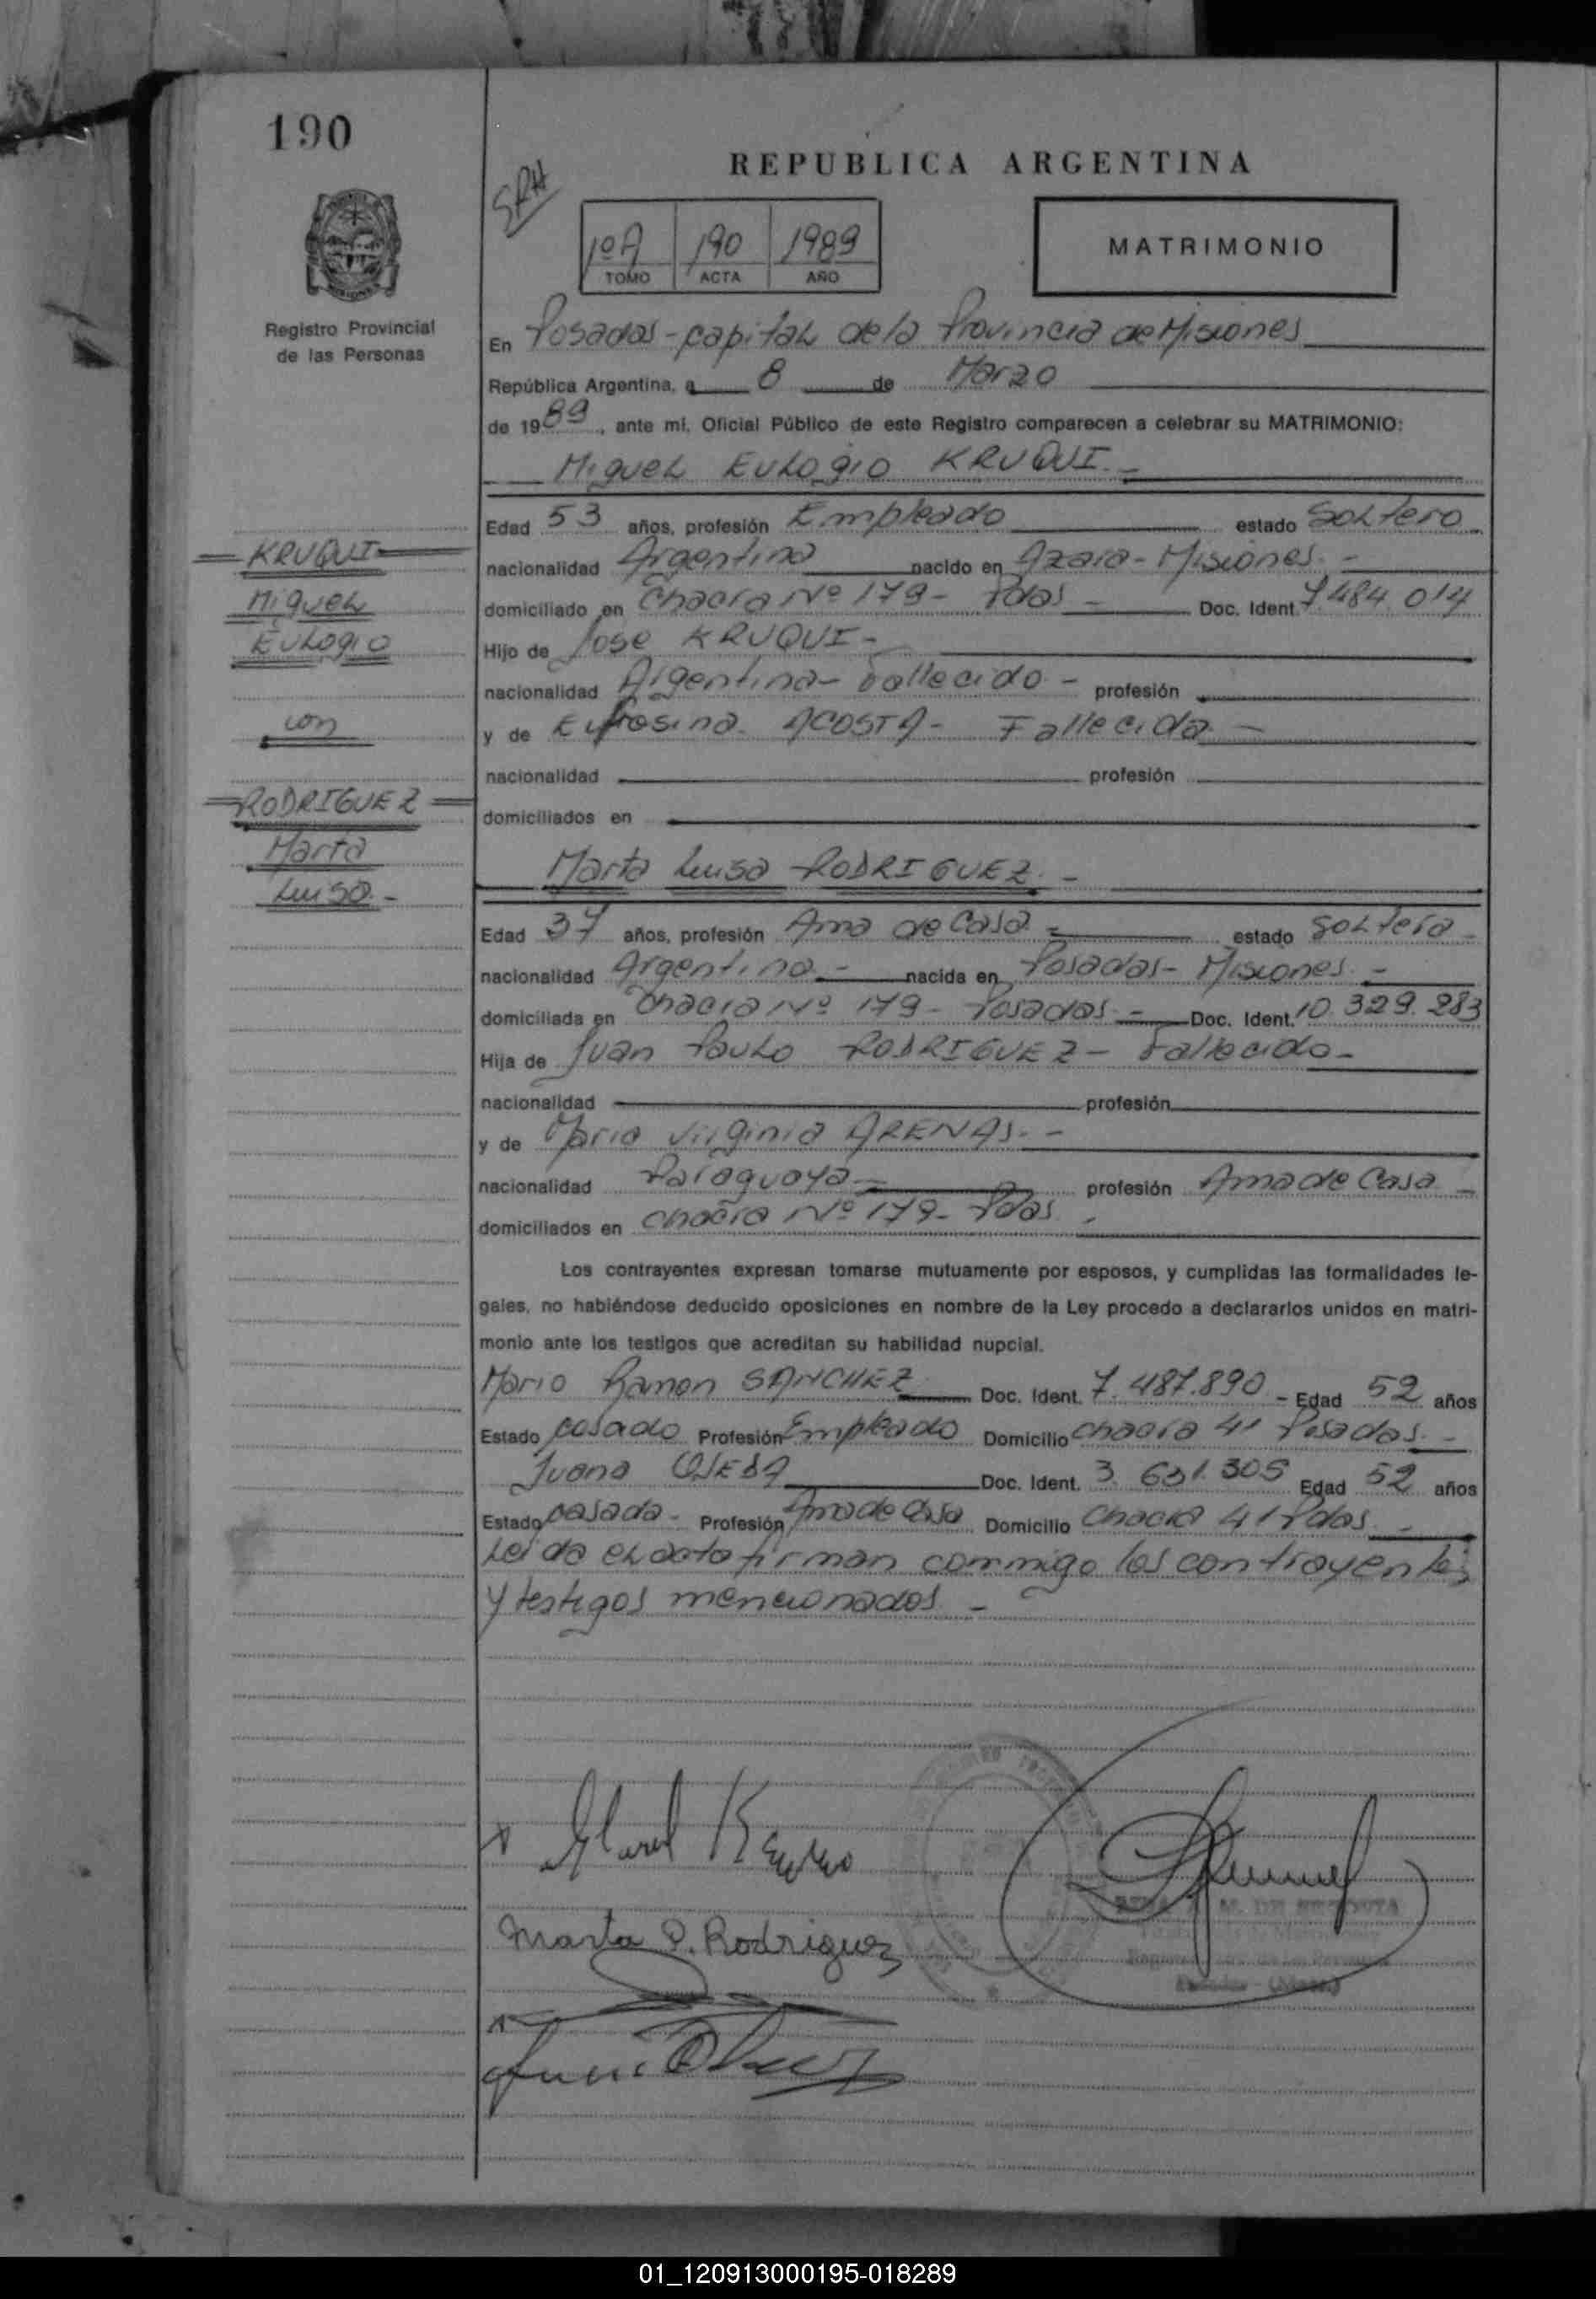 190
REPUBLICA ARGENTINA
SRH
1º A 190 1989
TOMO ACTA AÑO
MATRIMONIO
Registro Provincial
de las Personas
En Posadas - capital de la Provincia de Misiones
República Argentina, a 8 de Marzo
de 1989, ante mí, Oficial Público de este Registro comparecen a celebrar su MATRIMONIO:
Miguel Eulogio KRUQUI.-
Edad 53 años, profesión Empleado estado Soltero
nacionalidad Argentina nacido en Azara - Misiones. -
domiciliado en Chacra Nº 179 - Pdas - Doc. Ident. 7.484.014
Hijo de Jose KRUQUI -
nacionalidad Argentina - Fallecido - profesión
y de Eufrosina ACOSTA - Fallecida -
nacionalidad profesión
domiciliados en
KRUQUI
Miguel
Eulogio
con
RODRIGUEZ
Marta
Luisa. -
Marta Luisa RODRIGUEZ. -
Edad 37 años, profesión Ama de Casa - estado Soltera -
nacionalidad Argentina - nacida en Posadas - Misiones. -
domiciliada en Chacra Nº 179 - Posadas. - Doc. Ident. 10.329.283
Hija de Juan Paulo RODRIGUEZ - Fallecido -
nacionalidad profesión
y de Maria Virginia ARENAS. -
nacionalidad Paraguaya - profesión Ama de Casa -
domiciliados en chacra Nº 179 - Pdas. -
Los contrayentes expresan tomarse mutuamente por esposos, y cumplidas las formalidades le-
gales, no habiéndose deducido oposiciones en nombre de la Ley procedo a declararlos unidos en matri-
monio ante los testigos que acreditan su habilidad nupcial.
Mario Ramon SANCHEZ Doc. Ident. 7.487.890 - Edad 52 años
Estado casado Profesión Empleado Domicilio chacra 41 Posadas. -
Juana OJEDA Doc. Ident. 3.631.305 Edad 52 años
Estado casada - Profesión Ama de Casa Domicilio Chacra 41 Pdas. -
Leida el acta firman conmigo los contrayentes
y testigos mencionados -
Marta L. Rodriguez
M. DE
01_120913000195-018289